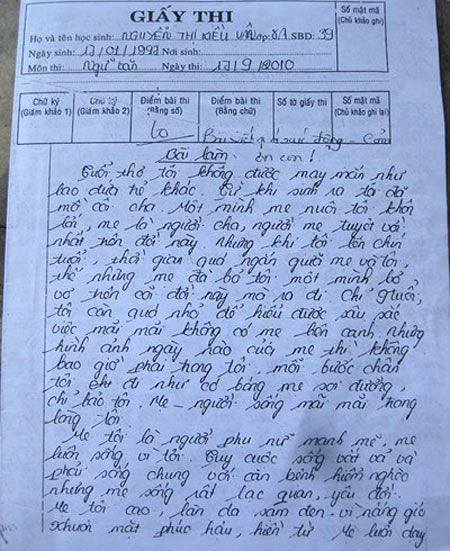 GIẤY THI
Họ và tên học sinh: NGUYỄN THỊ KIỀU VÂN Lớp: 8A SBD: 39
Ngày sinh: 17/01/1997 Nơi sinh:
Môn thi: Ngữ văn Ngày thi: 17/9/2010
Số mật mã
(Chủ khảo ghi)
Chữ ký
(Giám khảo 1)
Chữ ký
(Giám khảo 2)
Điểm bài thi
(Bằng số)
Điểm bài thi
(Bằng chữ)
Số tờ giấy thi
Số mật mã
(Chủ khảo ghi lại)
10
Bài viết quá xúc động - Cảm
ơn con!
Bài làm
Tuổi thơ tôi không được may mắn như
bao đứa trẻ khác. Từ khi sinh ra tôi đã
mồ côi cha. Một mình mẹ nuôi tôi khôn
lớn, mẹ là người cha, người mẹ tuyệt vời
nhất trên đời này. Nhưng khi tôi lên chín
tuổi, thời gian quá ngắn ngủi mẹ và tôi,
thế nhưng mẹ đã bỏ tôi một mình bơ
vơ trên cõi đời này mà ra đi. Chỉ 9 tuổi,
tôi còn quá nhỏ để hiểu được sâu sắc
việc mãi mãi không có mẹ bên cạnh, nhưng
hình ảnh ngày nào của mẹ thì không
bao giờ phai trong tôi, mỗi bước chân
tôi khi đi như có bóng mẹ soi đường,
chỉ bảo tôi. Mẹ - người sống mãi mãi trong
lòng tôi.
Mẹ tôi là người phụ nữ mạnh mẽ, mẹ
luôn sống vì tôi. Tuy cuộc sống vất vả và
phải sống chung với căn bệnh hiểm nghèo
nhưng mẹ sống rất lạc quan, yêu đời.
Mẹ tôi cao, làn da sạm đen vì nắng gió
khuôn mặt phúc hậu, hiền từ. Mẹ luôn dạy